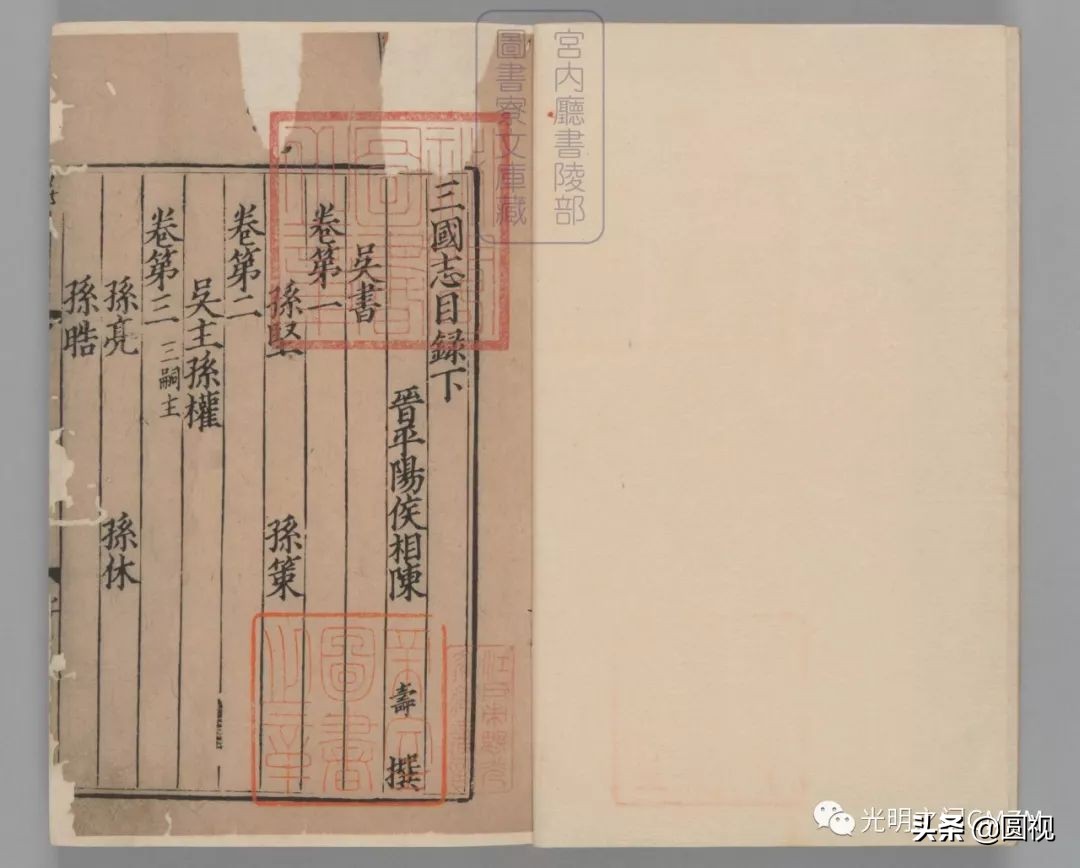 宮内廳書陵部
圖書寮文庫藏
三國志目録下
晉平陽侯相陳壽撰
吳書
卷第一
孫堅 孫策
卷第二
吳主孫權
卷第三 三嗣主
孫亮 孫休
孫晧
頭条 @圆视